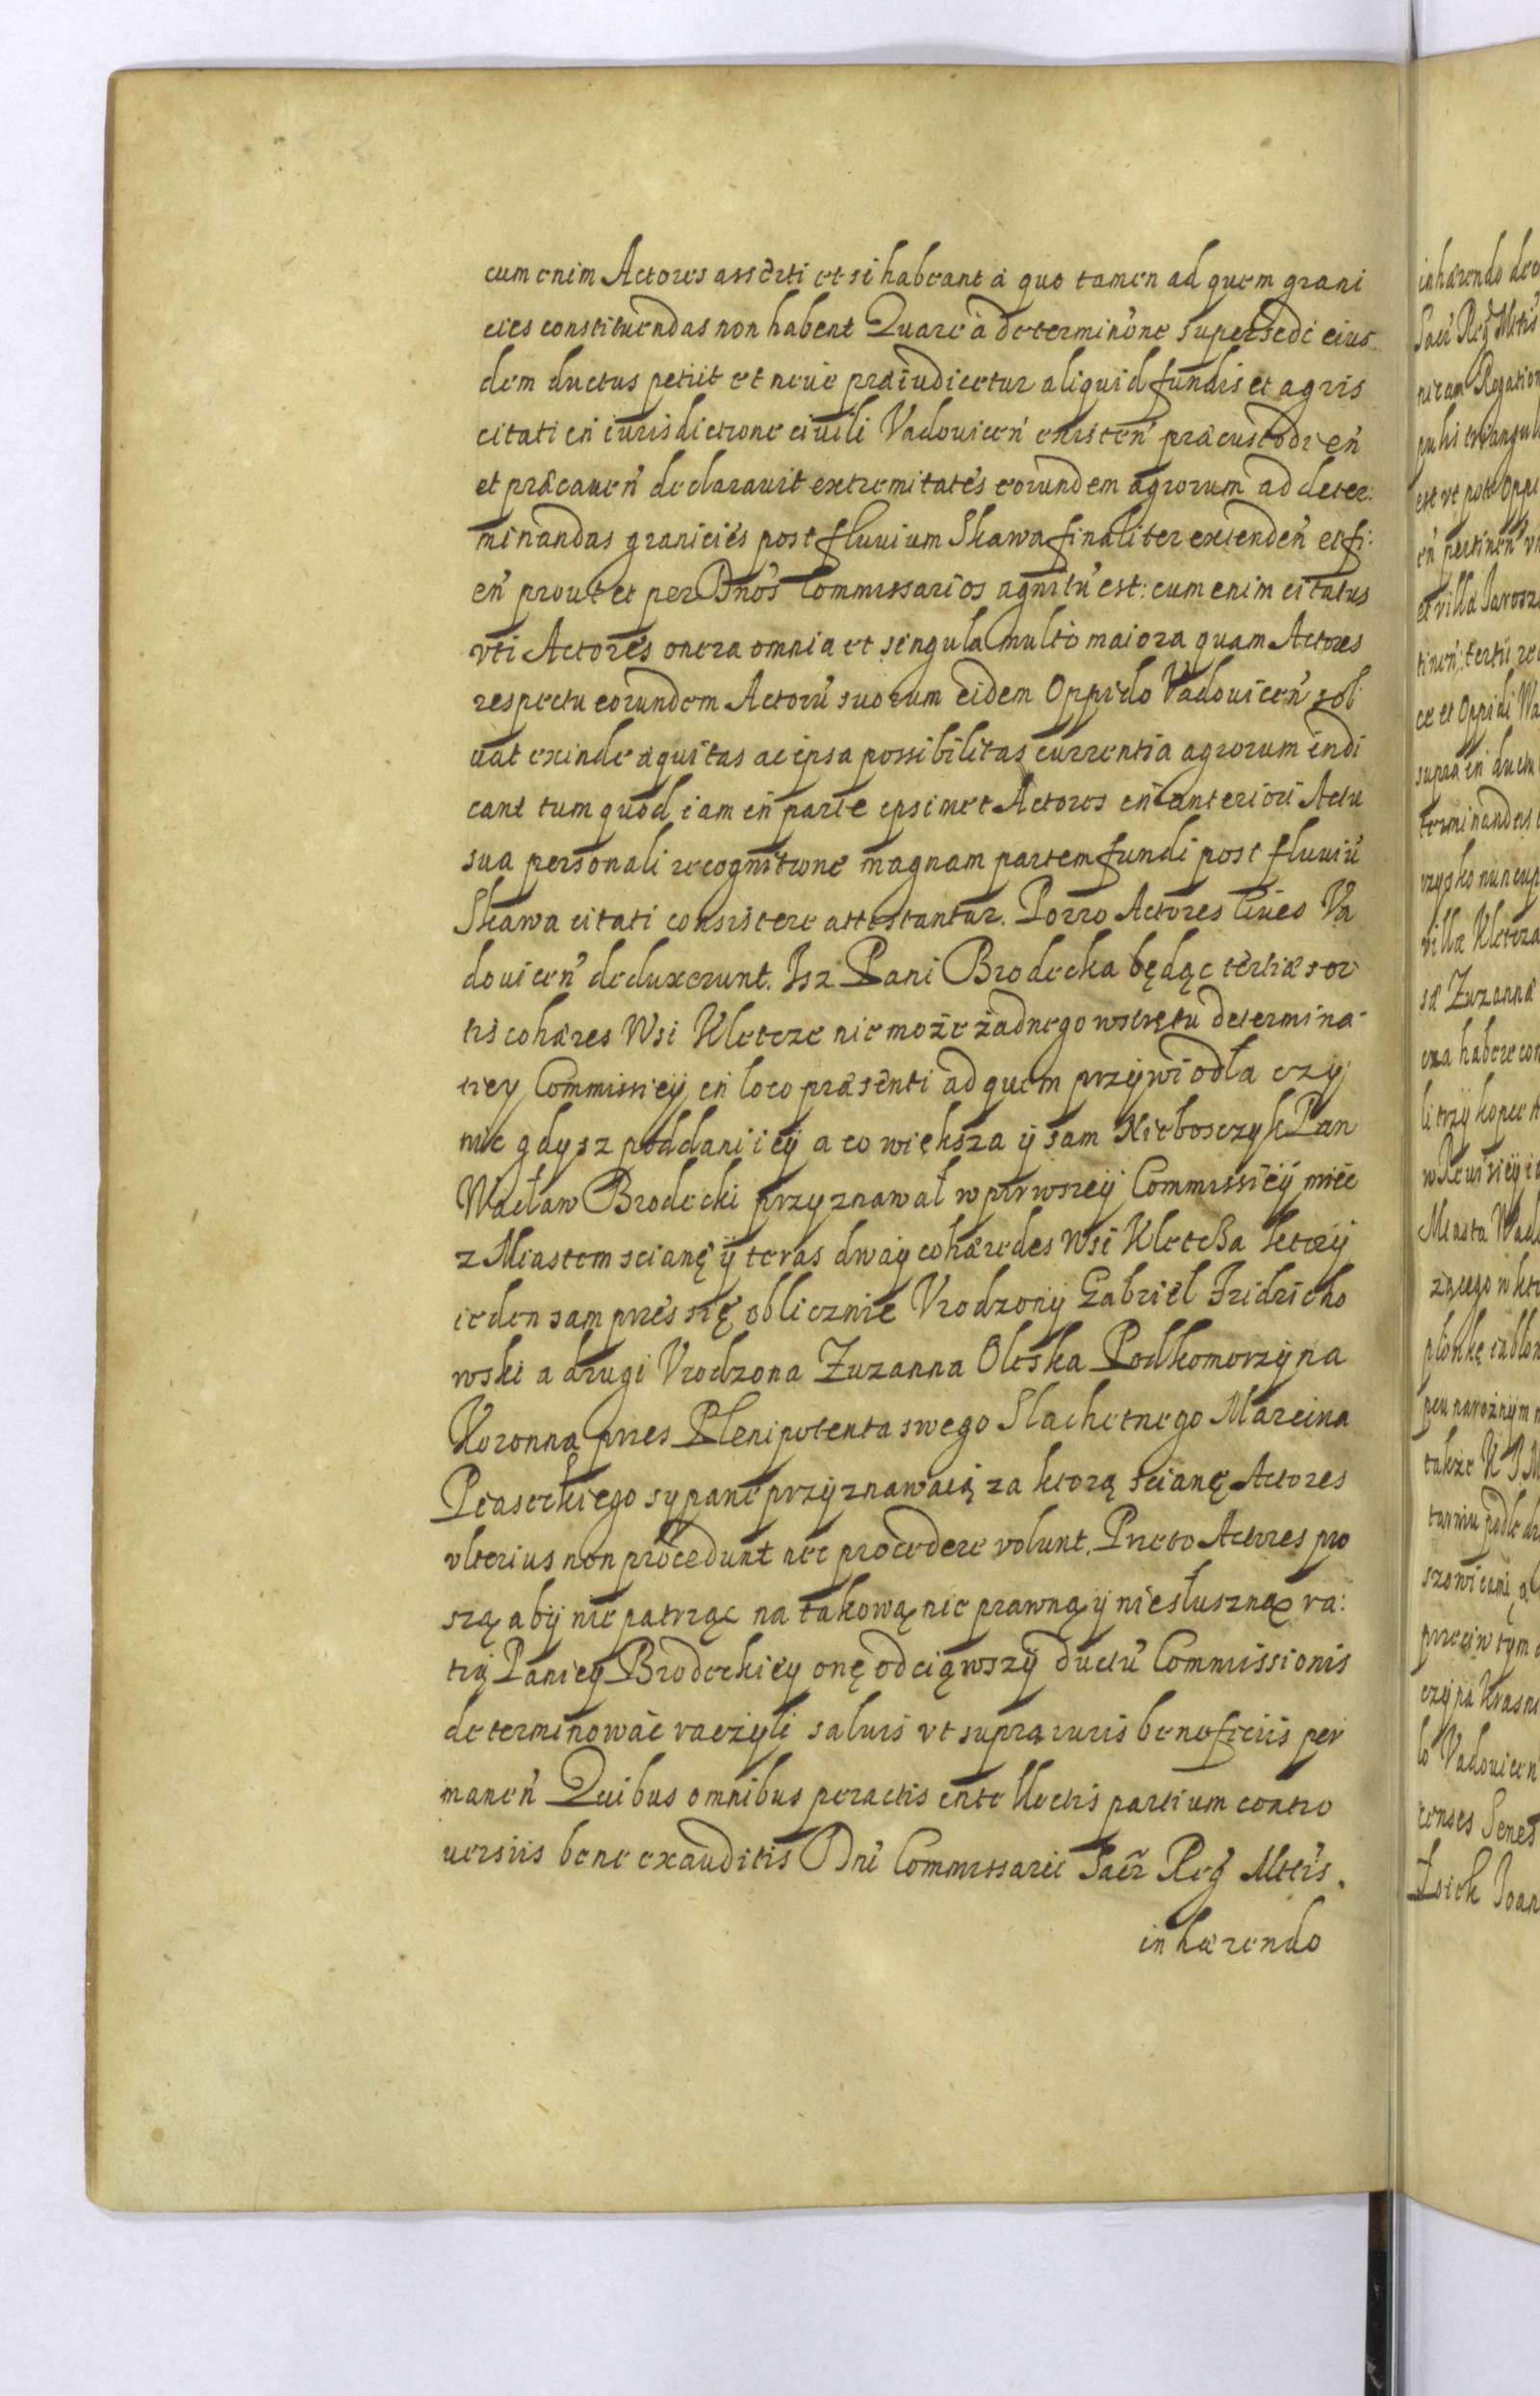 cum enim Actores asserti et si habeant a quo tamen ad quem grani
cies constituendas non habent Quare à determinône supersedi eius
dem ductus petiit et neue præiudicetur aliquid fundis et agris
citati in iurisdictione ciuili Vadouiceñ existeñ præcustodieñ
et præcaueñ declarauit extremitates eorundem agrorum ad deter:
minandas granicies post fluuium Skawa finaliter extendeñ et fi:
eñ prout et per Dños Commissarios agnitũ est: cum enim citatus
vti Actores onera omnia et singula multo maiora quam Actores
respectu eorundem Actorũ suorum eidem Oppido Vadouiceñ sol
uat exinde æquitas ac ipsa possibilitas currentia agrorum indi
cant tum quod iam in parte ipsimet Actores in anteriori Actu
sua personali recognitione magnam partem fundi post fluuiũ
Skawa citati consistere attestantur. Porro Actores Ciues Va
douiceñ deduxerunt. Isz Pani Brodecka będąc tertiæ sor
tis cohæres Wsi Kletcze nie może żadnego wstrętu determina
tiey Commissiey in loco præsenti ad quem przywiodła czy
nic gdysz poddani iey a co większa y sam Nieboszczyk Pan
Wacław Brodecki przyznawał w pirwszey Commissiey miec
z Miastem scianę y teras dway cohæredes Wsi Kletcza ktorzy
ieden sam przes się oblicznie Vrodzony Gabriel Fridricho
wski a drugi Vrodzona Zuzanna Oleska Podkomorzyna
Koronna przes Plenipotenta swego Slachetnego Marcina
Piaseckiego sypane przyznawaią za ktorą scianę Actores
vlterius non procedunt nec procedere volunt. Przeto Actores pro
szą aby nie patrząc na takową nie prawną y niesłuszną ra:
tią Paniey Brodeckiey onę odciąwszy ductũ Commissionis
determinowac raczyli saluis vt supra iuris beneficiis per
maneñ Quibus omnibus peractis intellectis partium contro
uersiis bene exauditis Dñi Commissarii Sacr̃ Reg̃ Mttis.
inhærendo